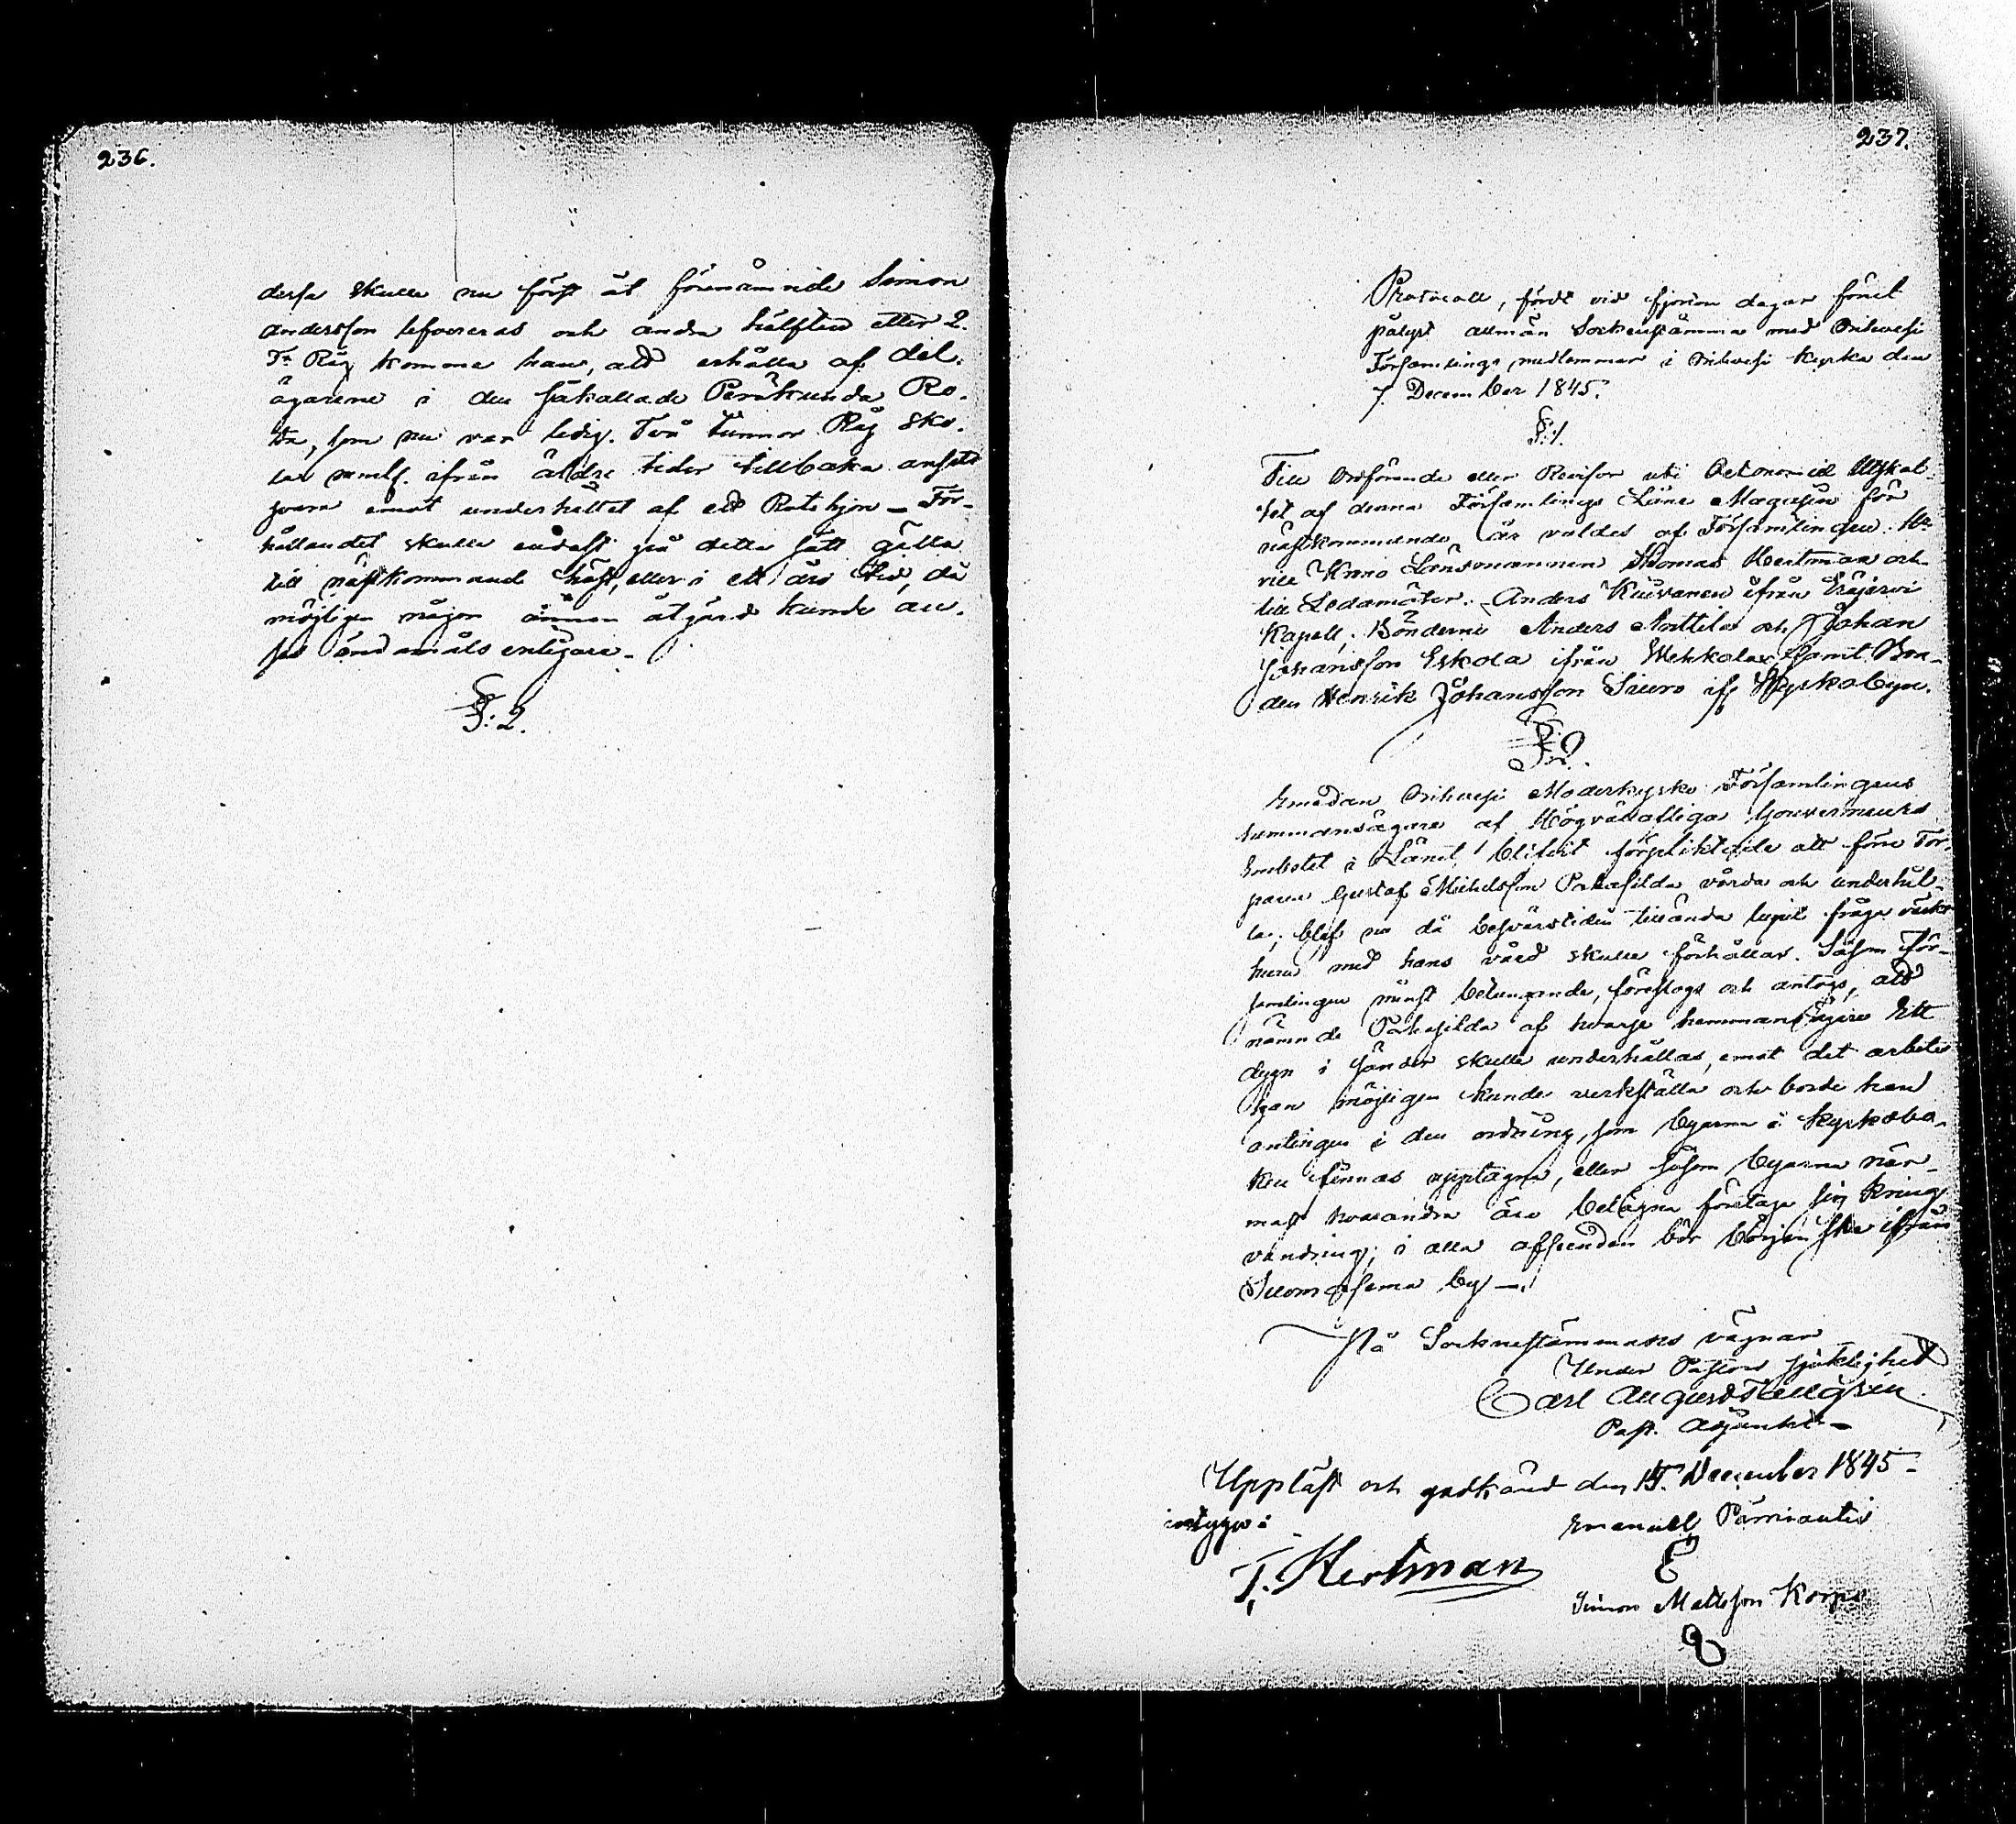 236.
dessa skulle nu först åt förenämnde Simon
Andersson lefvereras och andra hälften eller 2.
Tr Råg komme han, att erhålla af del-
ägarene i den såkallade Peräkunda Ro-
ta, som nu var ledig. Två tunnor Råg sko-
la neml. ifrån äldre tider tillbaka
svara emot underhållet af ett Rotehjon – För-
hållandet skulle endast på detta sätt gälla
till nästkommande höst, eller i ett års tid, då
möjligen någon annan åtgärd kunde an-
ses ändamåls enligare.
§: 2.
237.
Protocoll, fördt vid fjorton dagar förut
pålyst allmän Sockenstämma med Orihvesi
Församlings medlemmar i Orihvesi kyrka den
7. December 1845.
§:1.
Till Ordförande eller Revisor uti Oekonomie Utskot-
tet af denna Församlings Låne Magasin för
nästkommande år valdes af Församlingen
Krono Länsmannen Thomas Hertman och
till Ledamöter: Anders Kuivanen ifrån Eräjärvi
Kapell, Bönderne Anders Anttila och Johan
Johansson Eskola ifrån samt Bon-
den Henrik Johansson Siuro if. Kyrkobyn.
§:2.
Emedan Orihvesi Moderkyrko Församlingens
hemmansägare af Högvällofliga Gouverneurs
Embetet i Länet blifvit förpliktade att förre Tor-
paren Gustaf Michelsson vårda och underhål-
la; blef nu då besvärstiden tilländalupit fråga väckt
huru med hans vård skulle förhållas. Såsom För-
samlingen minst betungande, föreslogs och antogs, att
nämnde af hvarje hemmansägare Ett
dygn i sänder skulle underhållas, emot det arbete
han möjligen kunde verkställa och borde han
antingen i den ordning, som byarna i kyrkobö-
ken finnas upptagna, eller såsom byarna när-
mast hvarandra äro belägna företaga sin kring
vandring; i alla afseenden bör början ske ifrån
Suomasema by –.
På Socknestämmans vägnar
Under Pastors sjuklighet
Carl August Tallgrén
Past. Adjunct –
Uppläst och godkänd den 14. December 1845 –
intyga:
Emanuel
E
T. Hertman
Simon Mattsson Korpi